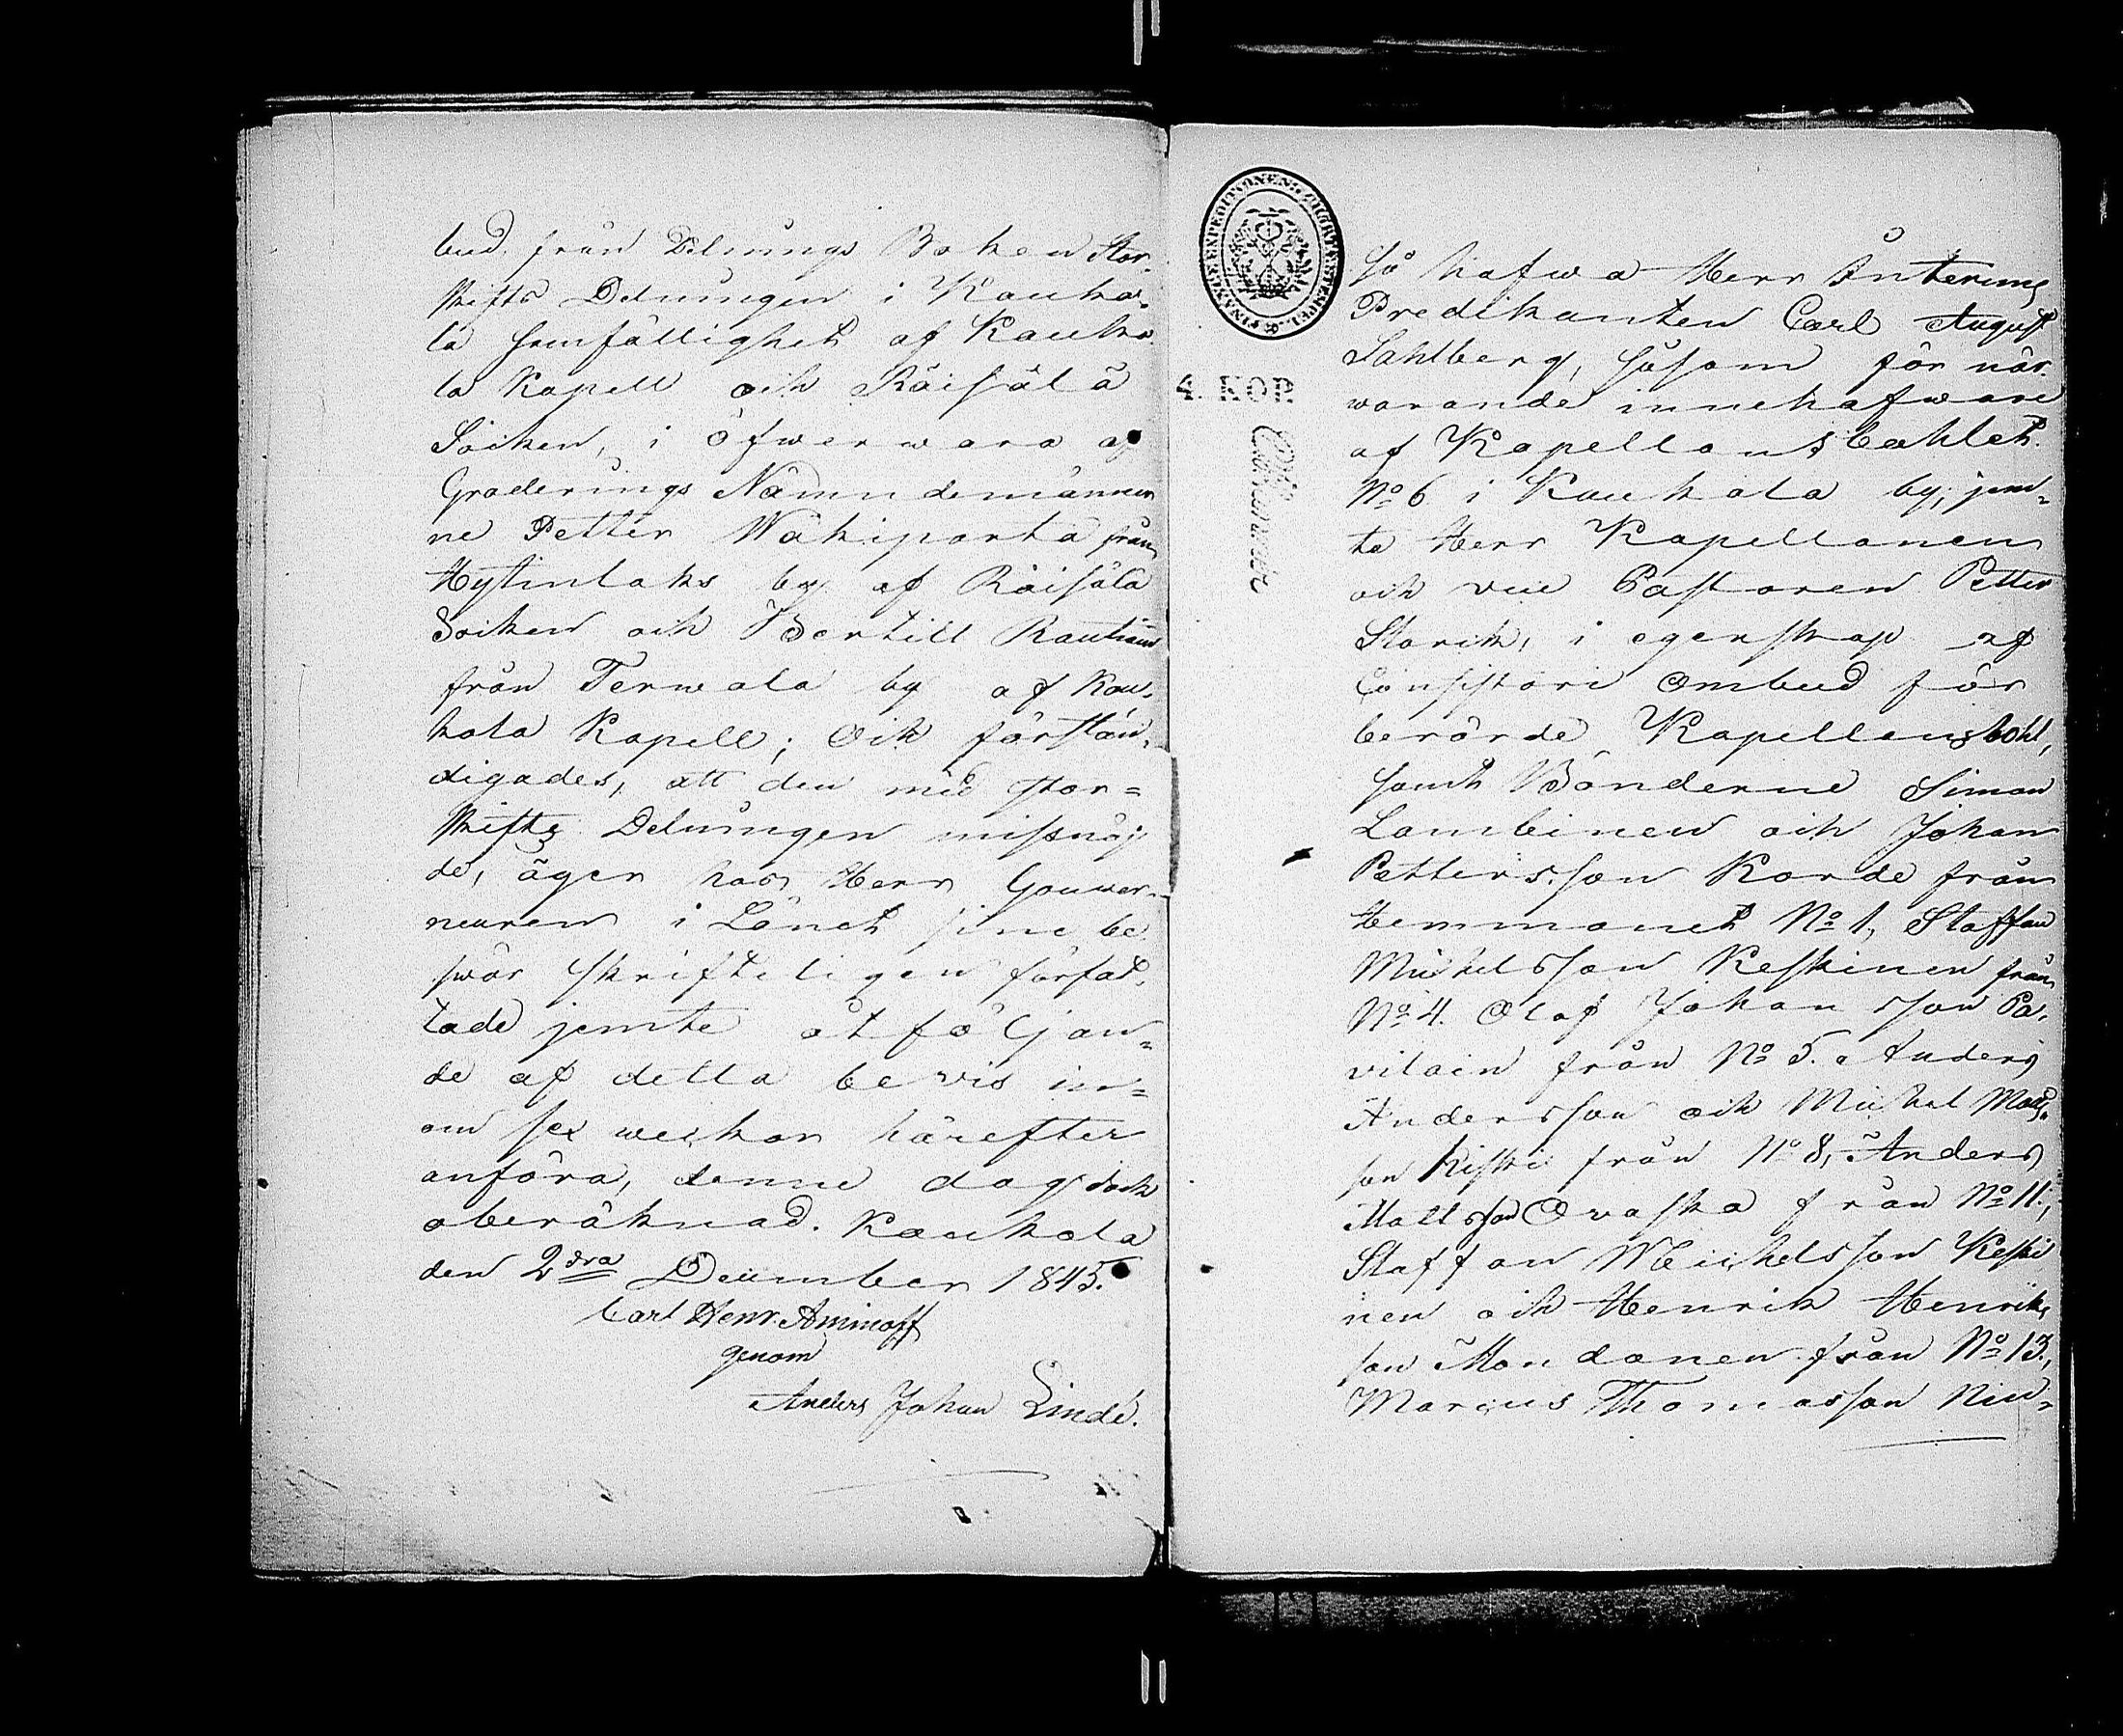 bud från Delnings Boken Stor-
skifts Delningen i Kauko-
la samfällighet af Kauko-
la Kapell och Räisälä
Socken, i öfwerwaro af
Graderings Nämndemänner
ne Petter Wahiparta från
Hytinlaks by af Räisälä
Socken och Bertill Rautiain
från Terwola by af Kau-
kola Kapell; Och förstän-
digades, att den med stor=
skifts Delningen missnöj
de, äger hos Herr Gouver-
neuren i Länet sine be
swär skrifteligen förfat-
tade jemte åtföljan=
de af detta bevis in=
om sex weckor härefter
anföra, denne dag dock
oberäknad. Kaukola
den 2dra December 1845.
Carl Henr. Aminoff
genom
Anders Johan Lindé.
FINANCE EXPEDITIONENS CHARTÆ STEMPEL
4. KOP.
Silfver
Så hafwa Herr Interims
Predikanten Carl August
Sahlberg, såsom för när-
warande innehafware
af Kapellans bohlet
No 6 i Kaukola by, jem-
te Herr Kapellanen
och vice Pastoren Petter
Starck, i egenskap af
Consistori Ombud för
berörde Kapellansbohl,
samt Bönderne Simon
Lambinen och Johan
Pettersson Korde från
Hemmanet No 1, Staffan
Michelsson Keskinen från
No 4. Olof Johansson Pa-
vilain från No 5. Anders
Andersson och Michel Matts-
son Kiski från No 8, Anders
Mattsson Ovaska från No 11,
Staffan Michelsson Keski
nen och Henrik Henriks
son Mondonen från No 13,
Marcus Thomasson Niu-